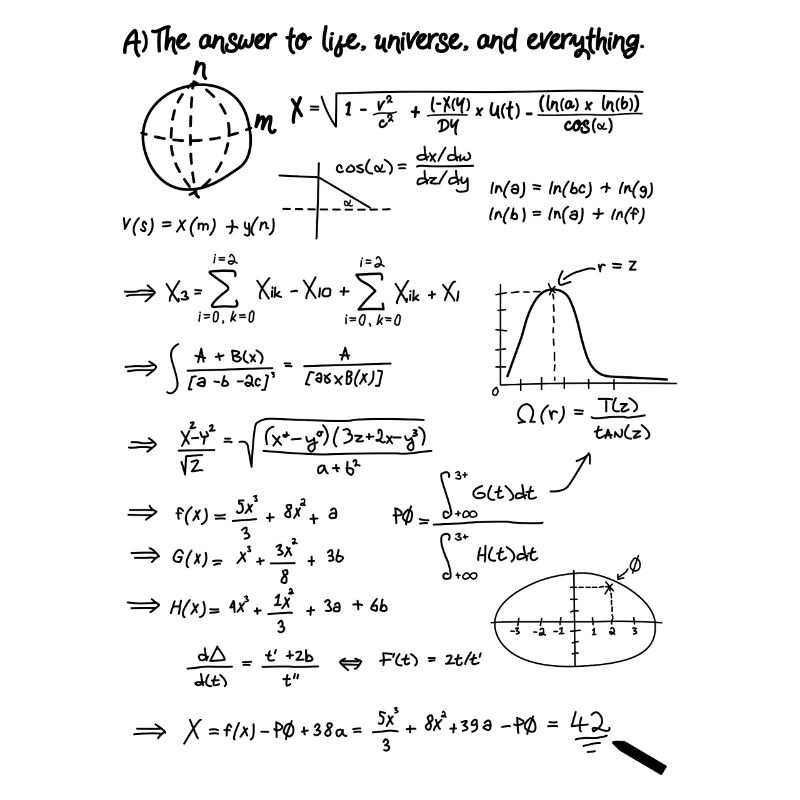 A) The answer to life, universe, and everything.
n
m
X = √(1 - v²/c² + (-X(Y)/DY × U(t) - ((ln(a) × ln(b))/cos(α))
cos(α) = dx/dw / dz/dy
α
ln(a) = ln(bc) + ln(g)
ln(b) = ln(a) + ln(f)
V(s) = x(m) + y(n)
⇒ X₃ = Σ Xik - X10 + Σ Xik + X1
i=2 i=2
i=0, k=0 i=0, k=0
r = z
0
⇒ ∫ A + B(x) / [a -b -2c]³ = A / [a8 x B(x)]
Ω(r) = T(z) / tAN(z)
⇒ X²-Y² / √2 = √((x⁴-y⁰)(3z+2x-y³) / a+b²
⇒ f(x) = 5x³/3 + 8x² + a
PØ = ∫ 3+ +∞ G(t)dt / ∫ 3+ +∞ H(t)dt
⇒ G(x) = x³ + 3x²/8 + 3b
⇒ H(x) = 4x³ + 1x²/3 + 3a + 6b
Ø
-3 -2 -1 1 2 3
d∆/d(t) = t' +2b / t'' ⇔ F'(t) = 2t/t'
⇒ X = f(x) - PØ + 38a = 5x³/3 + 8x² + 39a - PØ = 42